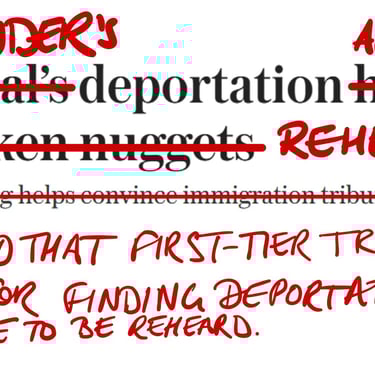 NDER'S A
al's deportation h
ken nuggets REHE
g helps convince immigration tribu
D THAT FIRST-TIER TR
OR FINDING DEPORTA
E TO BE REHEARD.